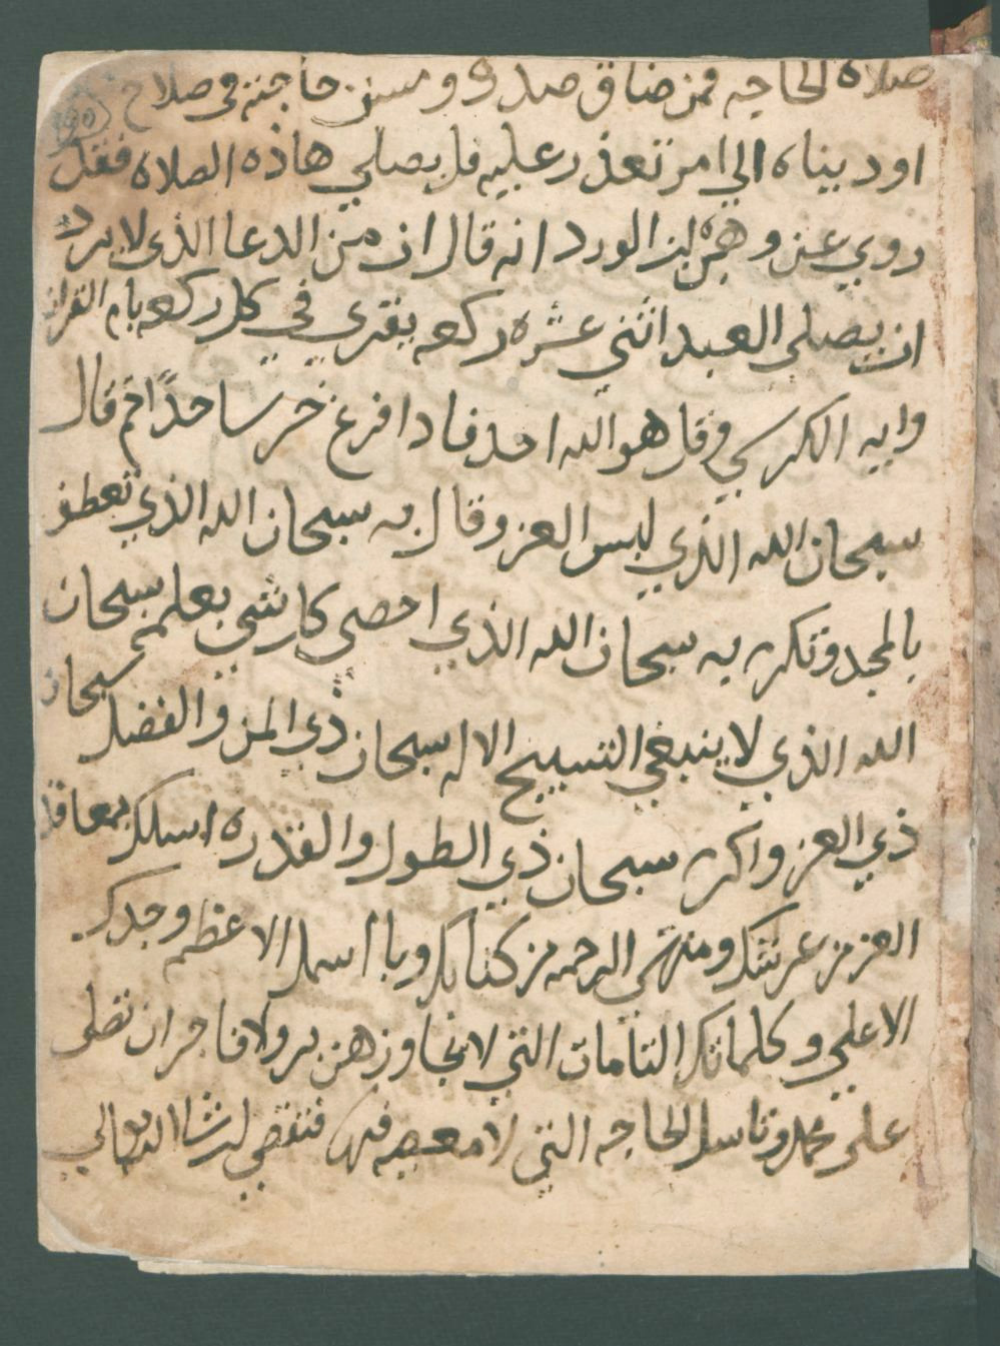 صلاة الحاجه فمن ضاق صدره ومسته حاجته في صلاح
او دنياه الي امر تعذر عليه فليصلي هاذه الصلاة فقد
روي عن وهب ابن الورد انه قال ان من الدعا الذي لا يرد
ان يصلي العبد اثنتي عشره ركعه يقري في كل ركعه بام القران
وايه الكرسي وقل هو الله احد فادا فرغ خر ساجدًا ثم قال
سبحان الله الذي لبس العز وقال به سبحان الله الذي تعطف
بالمجد وتكرم به سبحان الله الذي احصى كل شي بعلمه سبحان
الله الذي لا ينبغي التسبيح الا له سبحان ذي المن والفضل سبحان
ذي العز والكرم سبحان ذي الطول والقدره اسلك بمعاقد
العز من عرشك ومنتهي الرحمه من كتابك وبااسمك الاعظم وجدك
الاعلي وكلماتك التامات التي لا يجاوزهن بر ولا فاجر ان تصلي
على محمد وتاسل الحاجه التي لا معصيه فيها فتقضي ان شا الله تعالي